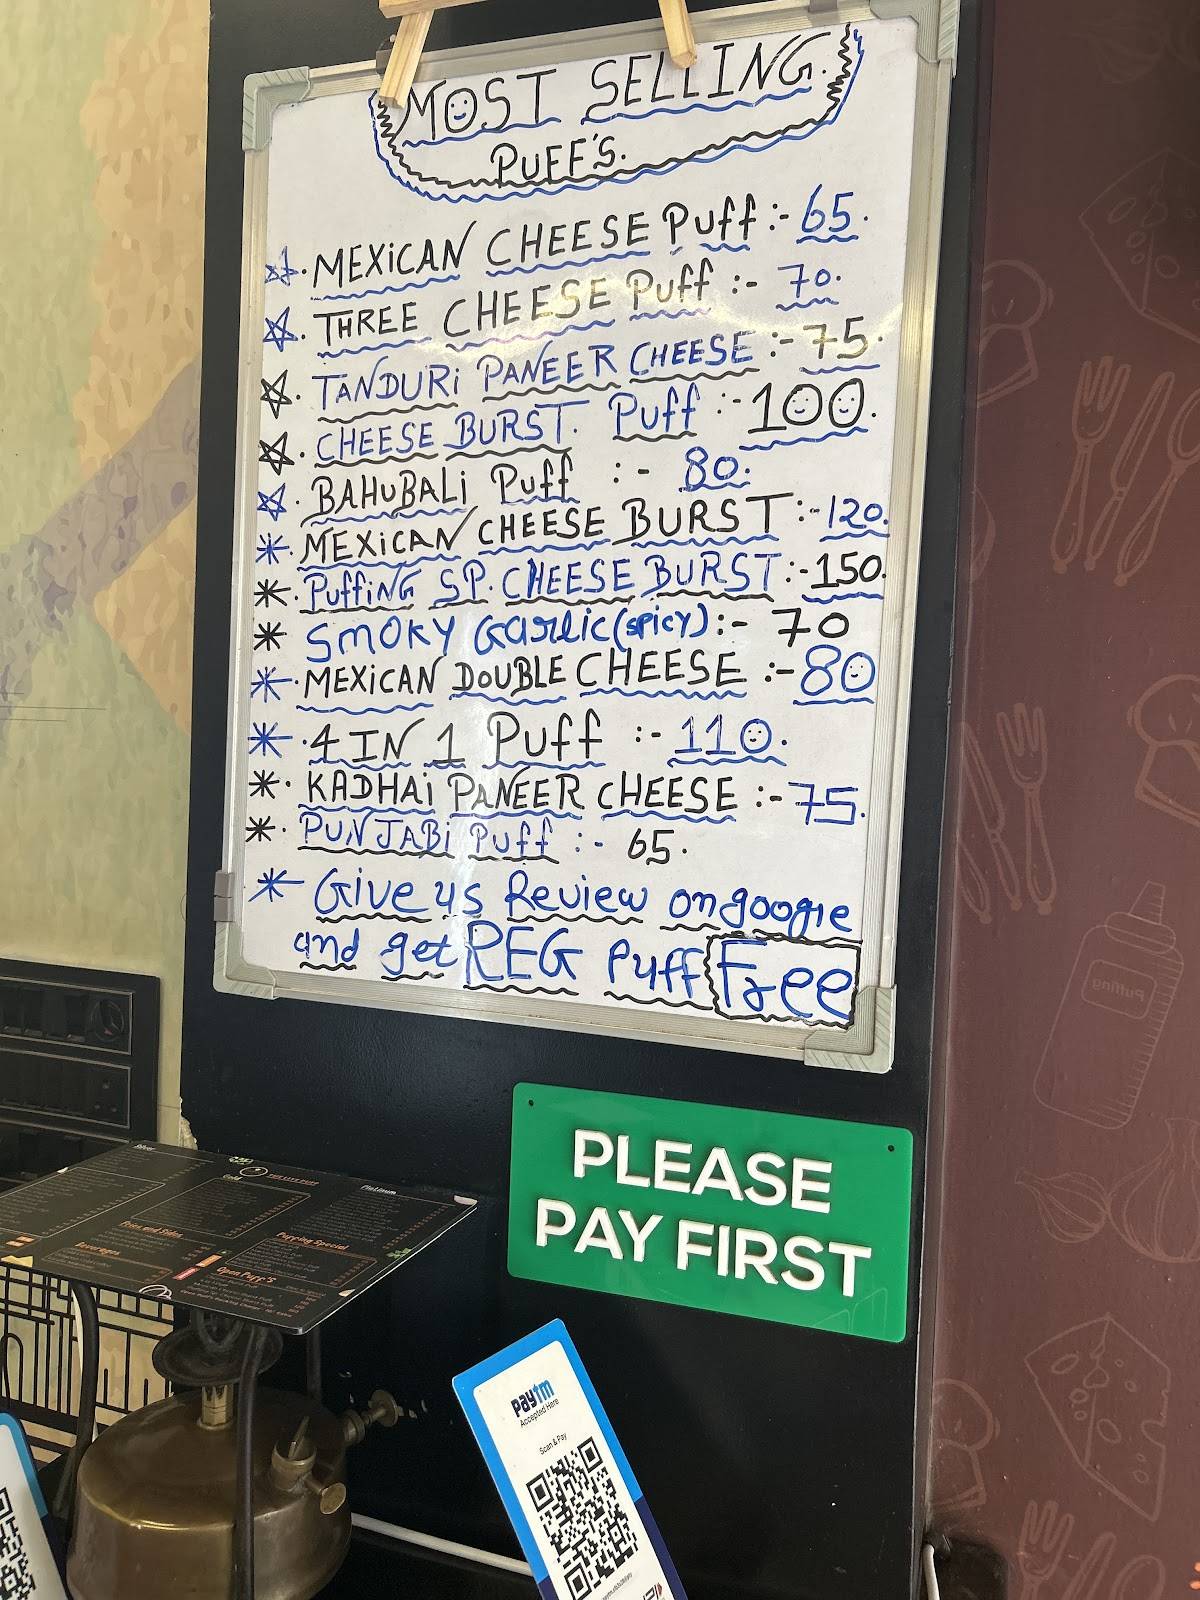 MOST SELLING.
PUFF'S.
MEXiCAN CHEESE Puff :- 65.
THREE CHEESE Puff :- 70.
TANDURi PANEER CHEESE :- 75.
CHEESE BURST. Puff :- 100.
BAHUBALi Puff :- 80.
MEXiCAN CHEESE BURST :- 120.
PuffiNG SP. CHEESE BURST :- 150.
SmOKY GaRLiC (SPICY) :- 70
MEXiCAN DOUBLE CHEESE :- 80
4 IN 1 Puff :- 110.
KADHAi PANEER CHEESE :- 75.
PUNJABi Puff :- 65.
Give us Review on google
and get REG Puff Free
PLEASE
PAY FIRST
Silver
Gold
Platinum
Fries and Sides
Beverages
Puffing Special
Open Puff'S
paytm
Accepted Here
Scan & Pay
Puffing